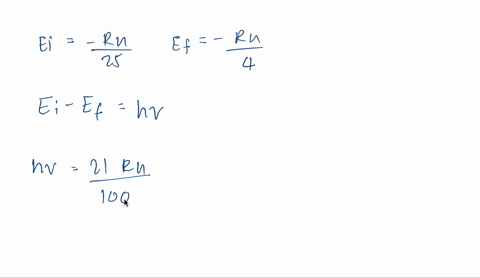 Ei = -RH/25 Ef = - RH/4
Ei - Ef = hν
hν = 21 RH/100